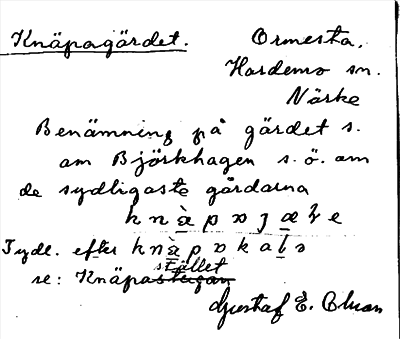 Knäpagärdet.
Ormesta,
Hardemo sn.
Närke
Benämning på gärdet s.
om Björkhagen s.ö. om
de sydligaste gårdarna
knæ̀pɒjæɽe
Tydl. efter knæ̀pɒkalɒ
se: Knäpastället
Gustaf E.